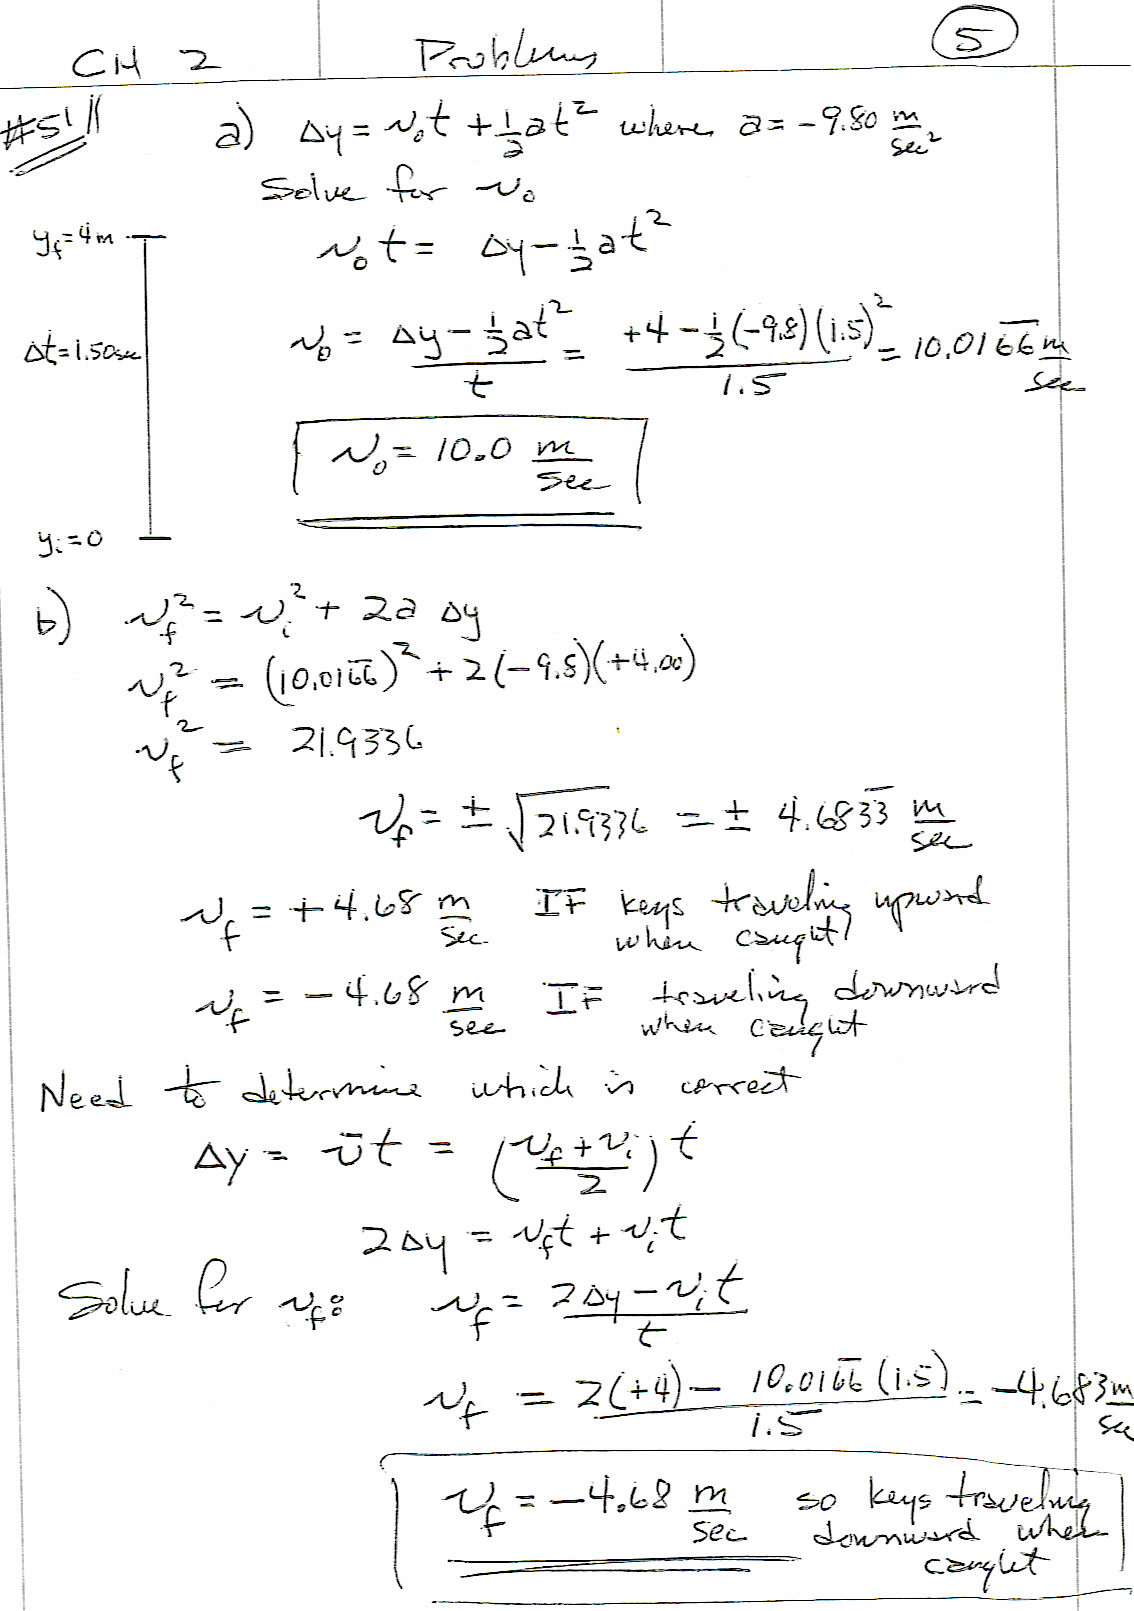 CH 2 Problems 5
#51
a) Δy = v₀t + 1/2 at² where a = -9.80 m/sec²
Solve for v₀
yf = 4m
v₀t = Δy - 1/2 at²
Δt = 1.50sec
v₀ = (Δy - 1/2 at²)/t = (+4 - 1/2 (-9.8)(1.5)²)/1.5 = 10.016̅6̅ m/sec
v₀ = 10.0 m/sec
yi = 0
b) vf² = vi² + 2a Δy
vf² = (10.016̅6̅)² + 2(-9.8)(+4.00)
vf² = 21.9336
vf = ± √21.9336 = ± 4.683̅3̅ m/sec
vf = +4.68 m/sec IF keys traveling upward
when caught
vf = -4.68 m/sec IF traveling downward
when caught
Need to determine which is correct
Δy = v̅t = ((vf + vi)/2) t
2Δy = vft + vit
Solve for vf: vf = (2Δy - vit)/t
vf = (2(+4) - 10.016̅6̅ (1.5))/1.5 = -4.683 m/sec
vf = -4.68 m/sec so keys traveling
downward when
caught